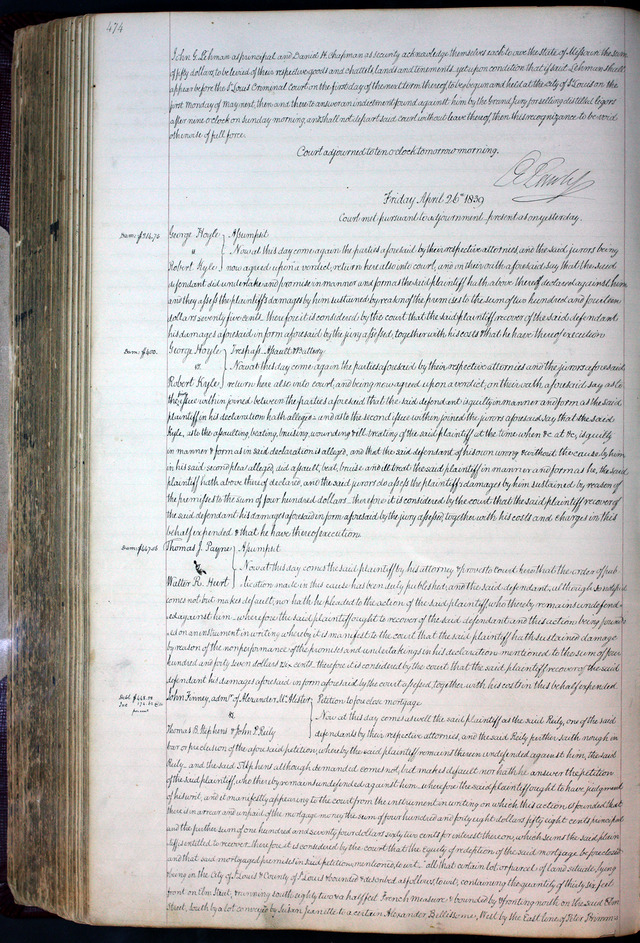 474
John G. Lehman as principal and Daniel H. Chapman as security acknowledge themselves each to owe the state of Missouri the sum
of fifty dollars, to be levied of their respective goods and chattels, lands and tenements, yet upon condition that if said Lehman shall
appear before the St Louis Criminal court on the first day of the next term thereof to be begun and held at the city of St Louis on the
first Monday of may next, then and there to answer an indictment found against him by the Grand jury for selling distilled liquors
after nine o'clock on sunday morning, and shall not depart said court without leave thereof then this recognizance to be void
otherwise of full force.
Court adjourned to ten o'clock tomorrow morning.
Friday April 26th 1839
Court met pursuant to adjournment present as on yesterday.
George Hoyle Assumpsit
vs Now at this day come again the parties aforesaid by their respective attorneys, and the said jurors being
Robert Kyle now agreed upon a verdict, return here also into court, and on their oath aforesaid say that the said
defendant did undertake and promise in manner and form as the said plaintiff hath above thereof declared against him
and they assess the plaintiff's damages by him sustained by reason of the premises to the sum of two hundred and fourteen
dollars seventy five cents. therefore it is considered by the court that the said plaintiff recover of the said defendant
his damages aforesaid in form aforesaid by the jury assessed, together with his costs & that he have thereof execution
Dam: $400. George Hoyle Trespass Assault & Battery
vs. Now at this day come again the parties aforesaid by their respective attornies and the jurors aforesaid
Robert Kyle return here also into court, and being now agreed upon a verdict, on their oath aforesaid say as to
the issue within joined between the parties aforesaid that the said defendant is guilty in manner and form as the said
plaintiff in his declaration hath alleged and as to the second issue within joined the jurors aforesaid say that the said
Kyle, as to the assaulting, beating, bruising, wounding & ill-treating of the said plaintiff at the time when &c at &c, is guilty
in manner & form as in said declaration is alleged, and that the said defendant of his own wrong & without the cause by him
in his said second plea alleged, did assault, beat, bruise and ill treat the said plaintiff in manner and form as he, the said
plaintiff hath above thereof declared, and the said jurors do assess the plaintiff's damages by him sustained by reason of
the premises to the sum of four hundred dollars. therefore it is considered by the court that the said plaintiff recover of
the said defendant his damages aforesaid in form aforesaid by the jury assessed, together with his costs and charges in this
behalf expended & that he have thereof execution.
Thomas J. Payne Assumpsit
Now at this day comes the said plaintiff by his attorney & proves to court here that the order of pub-
Walter R. Hurt lication made in this cause has been duly published; and the said defendant, although so notified
comes not but makes default, nor hath he pleaded to the action of the said plaintiff, who thereby remains undefend-
ed against him. wherefore the said plaintiff ought to recover of the said defendant and this action being founded
on an instrument in writing whereby it is manifest to the court that the said plaintiff hath sustained damage
by reason of the nonperformance of the promises and undertakings in his declaration mentioned to the sum of four
hundred and forty seven dollars cents. therefore it is considered by the court that the said plaintiff recover of the said
defendant his damages aforesaid in form aforesaid by the court assessed, together with his costs in this behalf expended
John Finney, admr. of Alexander McAlister Petition to foreclose mortgage
vs. Now at this day comes as well the said plaintiff as the said Reily, one of the said
Thomas B. Stephens & John P. Reily defendants by their respective attornies, and the said Reily further saith nought in
bar or preclusion of the aforesaid petition; whereby the said plaintiff remains therein undefended against him, the said
Reily. and the said Stephens although demanded comes not, but makes default nor hath he answer the petition
of the said plaintiff, who thereby remains undefended against him. wherefore the said plaintiff ought to have judgment
of his writ, and it manifestly appearing to the court from the instrument in writing on which this action is founded that
there is in arrear and unpaid of the mortgage money the sum of four hundred and forty eight dollars fifty eight cents principal
and the further sum of one hundred and seventy four dollars sixty two cents for interest thereon, which sums the said plain-
tiff is entitled to recover. therefore it is considered by the court that the equity of redeption of the said mortgage be foreclosed
and that said mortgaged premises in said petition mentioned, to wit. "all that certain lot or parcel of land situate, lying
& being in the City of St Louis & County of St Louis & bounded & described as follows, towit, containing the quantity of thirty six feet
front on Elm Street, & running south eighty two & a half feet French measure & bounded by & fronting north on the said Elm
Street, south by a lot conveyed by Susan Jeanette to a certain Alexander Bellissime, West by the East line of Peter